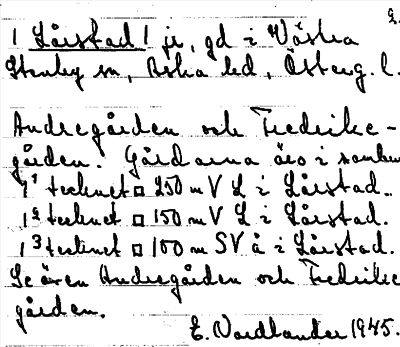 2.
1 Lårstad 1 je, gd i Västra
Stenby sn, Boba hd, Österg. l.
Andregården och Fredrike-
gården. Gårdarna äro i sambr
1¹ tecknet □ 250 m V L i Lårstad.
1² tecknet □ 150 m V L i Lårstad.
1³ tecknet □ 100 m SV å i Lårstad.
Se även Andregården och Fredrike
gården.
E. Nordlander 1945.